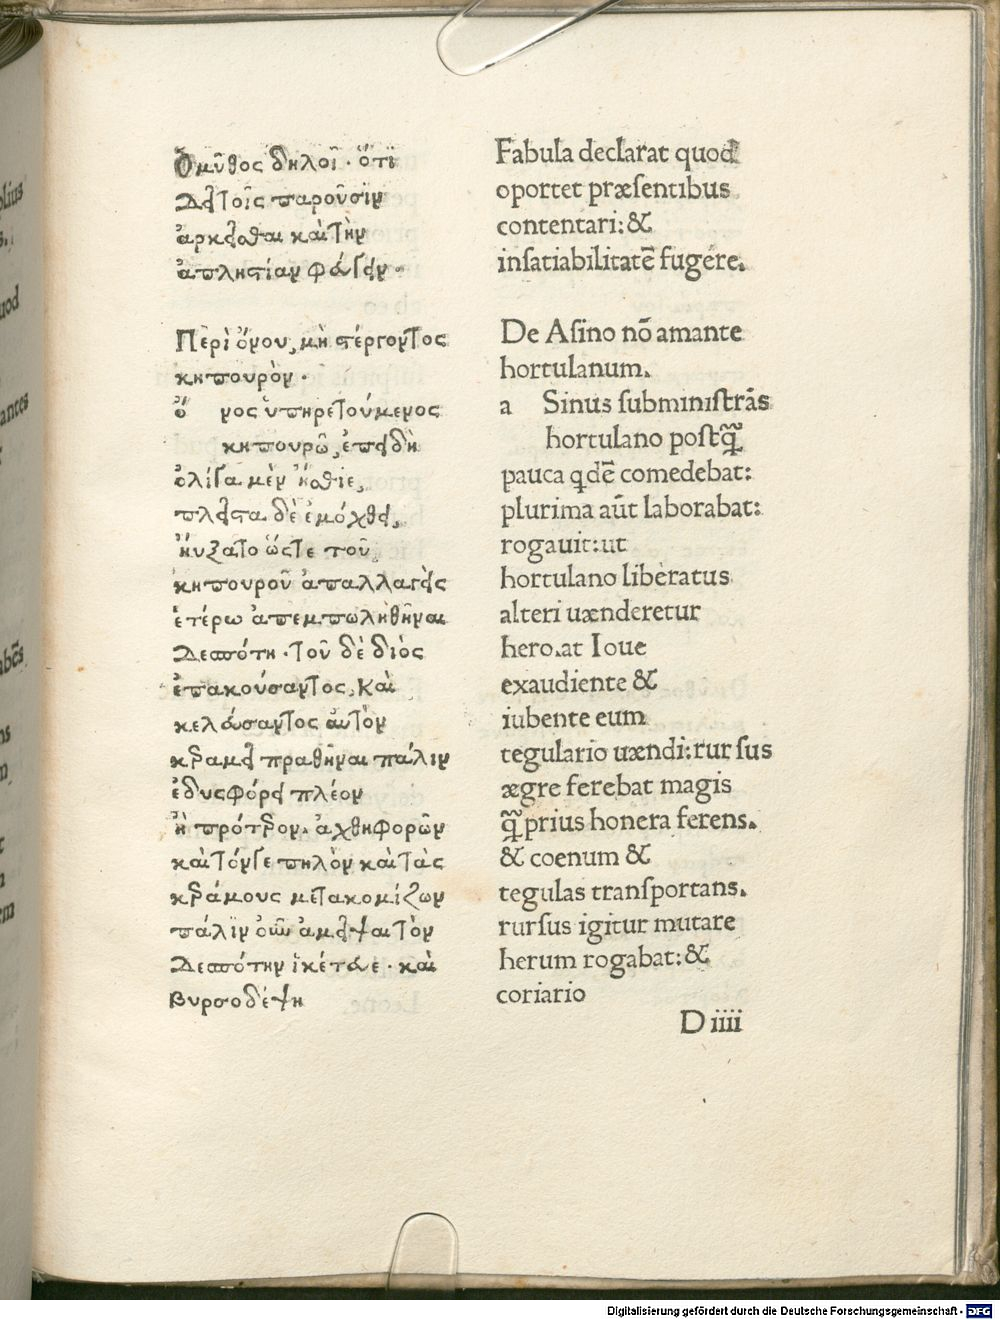 Ὁ μῦθος δηλοῖ· ὅτι
δεῖ τοῖς παροῦσιν
ἀρκεῖσθαι καὶ τὴν
ἀπληστίαν φεύγειν.
Περὶ ὄνου, μὴ στέργοντος
κηπουρὸν.
ὄ νος ὑπηρετούμενος
κηπουρῶ, ἐπειδὴ
ὀλίγα μὲν ἤσθιε,
πλεῖστα δὲ ἐμόχθει,
ἠύξατο ὥστε τοῦ
κηπουροῦ ἀπαλλαγεὶς
ἑτέρω ἀπεμπωληθῆναι
δεσπότη. τοῦ δὲ διὸς
ἐπακούσαντος, καὶ
κελεύσαντος αὐτὸν
κεραμεῖ πραθῆναι πάλιν
ἐδυσφόρει πλέον
ἢ πρότερον. ἀχθηφορῶν
καὶ τόν γε πηλὸν καὶ τὰς
κεράμους μετακομίζων
πάλιν οὖν ἀμεῖψαι τὸν
δεσπότην ἱκέτευε. καὶ
βυρσοδέψη
Fabula declarat quod
oportet præsentibus
contentari: &
insatiabilitatē fugere.
De Asino nō amante
hortulanum.
a Sinus subministrãs
hortulano postq̃̃
pauca qdē comedebat:
plurima aũt laborabat:
rogauit: ut
hortulano liberatus
alteri uænderetur
hero. at Ioue
exaudiente &
iubente eum
tegulario uændi: rur sus
ægre ferebat magis
q̃̃ prius honera ferens.
& coenum &
tegulas transportans.
rursus igitur mutare
herum rogabat: &
coriario
D iiii
Digitalisierung gefördert durch die Deutsche Forschungsgemeinschaft - DFG